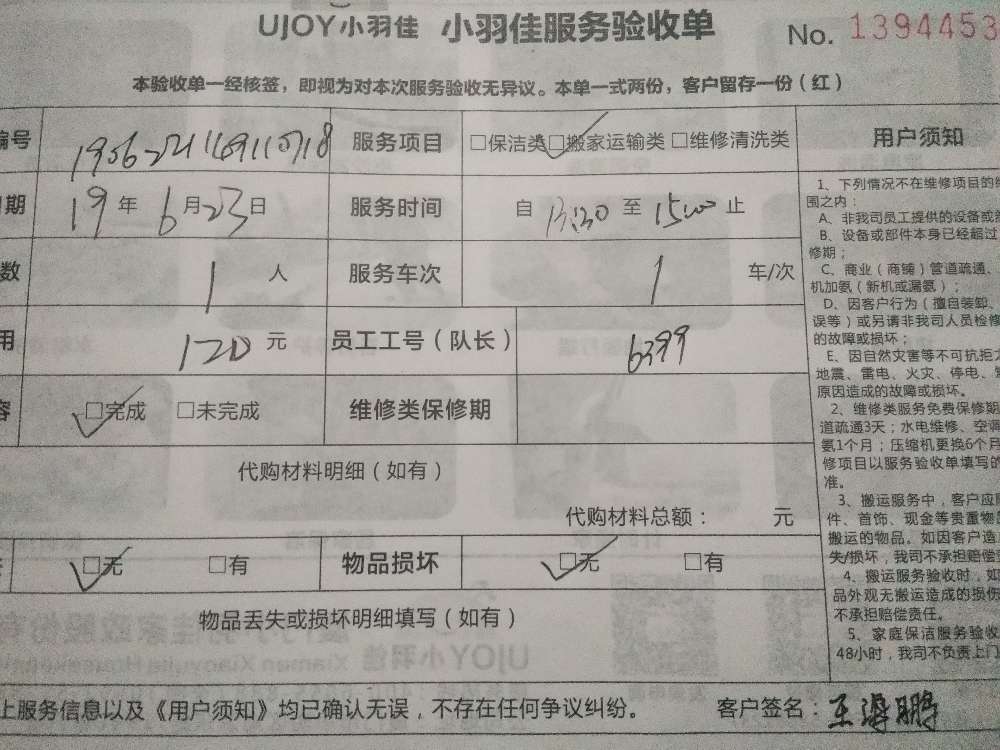 UJOY小羽佳 小羽佳服务验收单 No. 1394453
本验收单一经核签，即视为对本次服务验收无异议。本单一式两份，客户留存一份（红）
编号 服务项目 □保洁类 □搬家运输类 □维修清洗类
日期 19年6月23日 服务时间 自13:30至15:00止
数 1人 服务车次 1车/次
用 120元 员工工号（队长） 6399
容 □完成 □未完成 维修类保修期
代购材料明细（如有）
代购材料总额： 元
□无 □有 物品损坏 □无 □有
物品丢失或损坏明细填写（如有）
上服务信息以及《用户须知》均已确认无误，不存在任何争议纠纷。 客户签名：王海鹏
用户须知
1、下列情况不在维修项目的
围之内：
A、非我司员工提供的设备或
B、设备或部件本身已经超过
修期；
C、商业（商铺）管道疏通、
机加氨（新机或漏氨）；
D、因客户行为（擅自装卸、
误等）或另请非我司人员检修
的故障或损坏；
E、因自然灾害等不可抗拒
地震、雷电、火灾、停电、
原因造成的故障或损坏。
2、维修类服务免费保修期
道疏通3天；水电维修、空调
氨1个月；压缩机更换6个月
修项目以服务验收单填写的
准。
3、搬运服务中，客户应
件、首饰、现金等贵重物
搬运的物品。如因客户造
失/损坏，我司不承担赔偿
4、搬运服务验收时，如
品外观无搬运造成的损伤
不承担赔偿责任。
5、家庭保洁服务验收
48小时，我司不负责上门